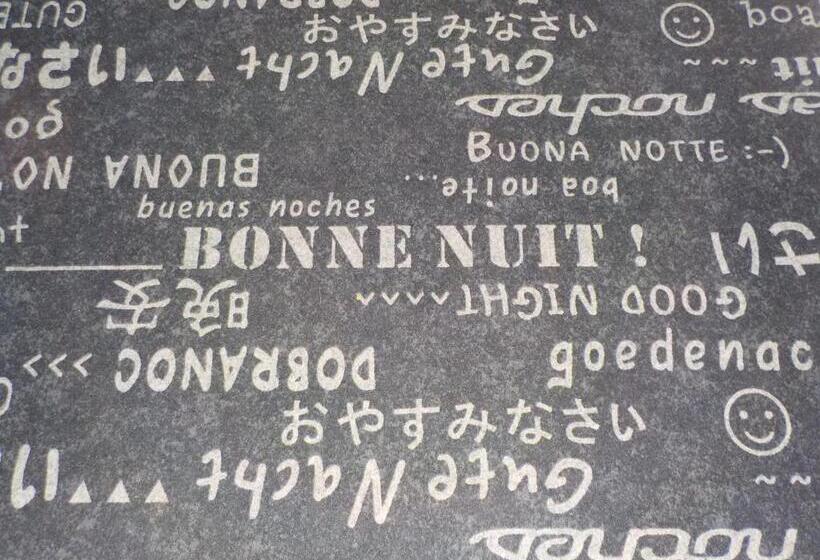 GUTE
DOBRANOC
おやすみなさい
boa
Gute Nacht
さい
noches
BUONA NOTTE :-)
BUONA NO
boa noite...
buenas noches
BONNE NUIT !
さい
晚安
GOOD NIGHT ^^^^
DOBRANOC >>>
goedenac
おやすみなさい
Gute Nacht
~ ~
noches